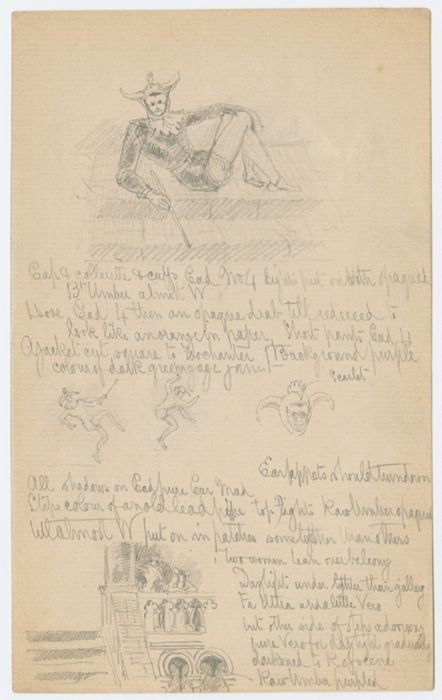 Caps collerette & cuffs Cad No 4 lights put on with opaque
Bt Umber almost W
Hose Cad 4 then an opaque drab till reduced to
look like an orange in paper Short pants Cad 4
& jacket cut square to trochanter Background purple
colour of dark greengage jam
Scarlet
Ear lappets should turn down
All shadows on Cad pure Car Mad
Steps colour of an old lead pipe top lights Raw Umber opaque
till almost W put on in patches some lighter than others
two women lean over balcony
Daylight under lighter than gallery
and a little Vero
but other side of steps a doorway
pure Vero for daylight gradually
darkened to
Raw Umber purpled